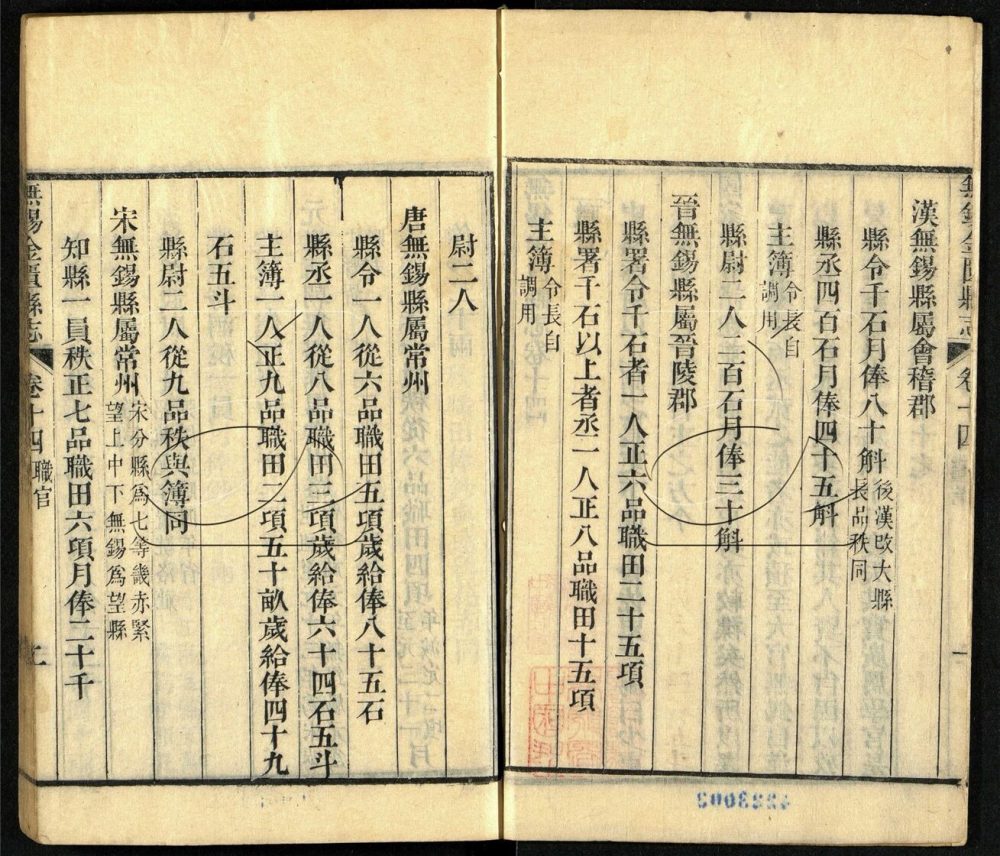 漢無錫縣屬會稽郡
縣令千石月俸八十斛後漢改大縣
長品秩同
縣丞四百石月俸四十五斛
主簿令長自
調用
縣尉二人二百石月俸三十斛
晉無錫縣屬晉陵郡
縣署令千石者一人正六品職田二十五項
縣署千石以上者丞一人正八品職田十五項
主簿令長自
調用
尉二人
唐無錫縣屬常州
縣令一人從六品職田五項歲給俸八十五石
縣丞一人從八品職田三項歲給俸六十四石五斗
主簿一人正九品職田二項五十畝歲給俸四十九
石五斗
縣尉二人從九品秩與簿同
宋無錫縣屬常州宋分縣為七等畿赤緊
望上中下無錫為望縣
知縣一員秩正七品職田六項月俸二十千
無錫金匱縣志 卷十四 職官